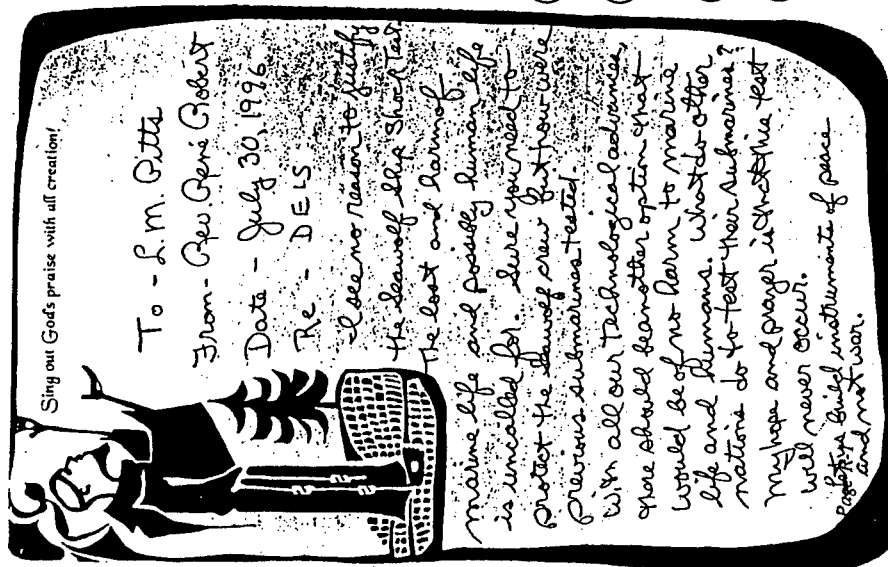 Sing out God's praise with all creation!
To - L.M. Pitts
From - Rev. René Robert
Date - July 30, 1996
Re - DEIS
I see no reason to justify
the Seawolf Ship Shock Test.
The lost and harm of
marine life and possibly human life
is uncalled for. Sure you need to
protect the Seawolf crew but how were
previous submarines tested.
With all our technological advances,
there should be another option that
would be of no harm to marine
life and humans. What do other
nations do to test their submarines?
My hope and prayer is that this test
will never occur.
Let us build instruments of peace
and not war.